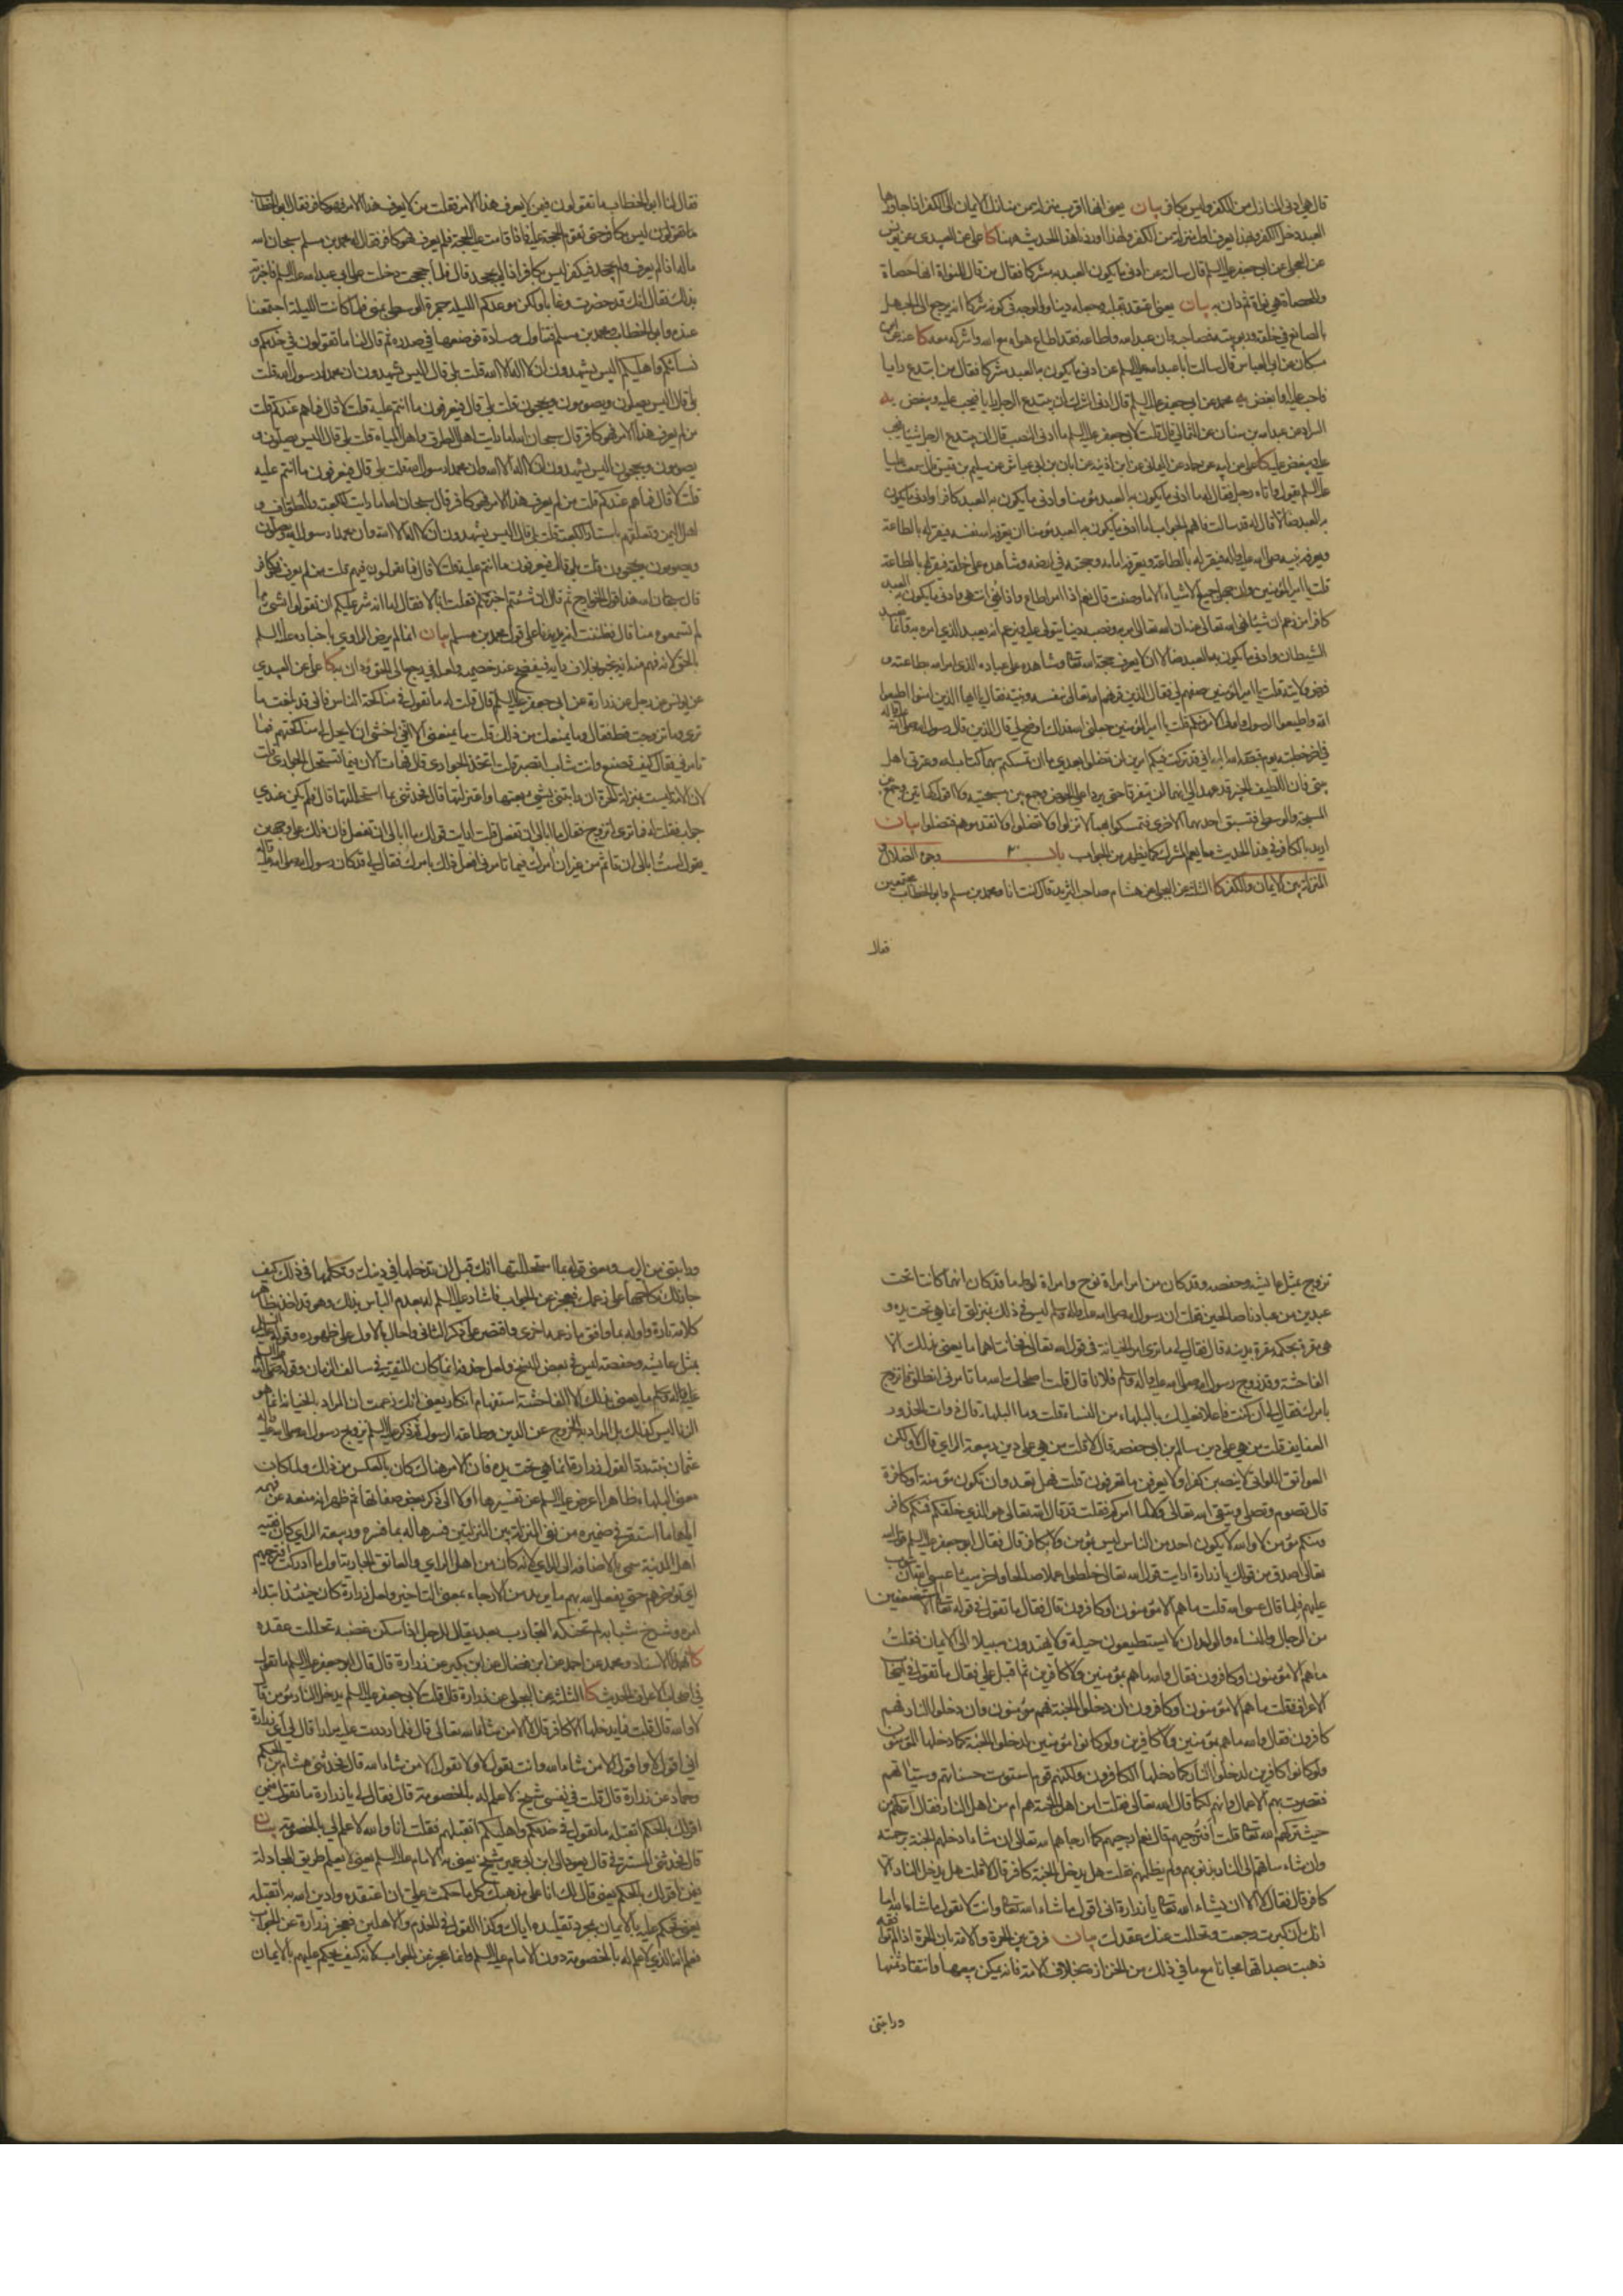 قال هي ادنى المنازل من الكفر وليس بكافر بيان يعني انها اقرب منزلة من منازل الايمان الى الكفر اذا جاوزها
العبد دخل الكفر ولهذا اوردنا هذا الحديث ههنا كا علي عن العبيدي عن يونس
عن العجلي عن ابي جعفر عليه السلم قال سالته عن ادنى ما يكون العبد به مشركا فقال من قال للنواة انها حصاة
وللحصاة هي نواة ثم دان به بيان يعني يعتقد بقلبه وجعله دينا والوجه في كونه شركا انه يرجع الى
مسكان عن ابي العباس قال سالت ابا عبد الله عليه السلم عن ادنى ما يكون به العبد مشركا فقال من ابتدع رايا
فاحب عليه او ابغض عليه
السراد عن عبد الله بن سنان عن الثمالي قال قلت لابي جعفر عليه السلم ما ادنى النصب قال ان يبتدع الرجل شيئا فيحب
عليه ويبغض عليه كا علي عن ابيه عن حماد عن اليماني عن ابن اذينة عن ابان بن ابي عياش عن سليم بن قيس قال سمعت عليا
عليه السلم يقول واتاه رجل فقال له ما ادنى ما يكون به العبد مؤمنا وادنى ما يكون به العبد كافرا وادنى ما يكون
به العبد ضالا فقال له قد سالت فافهم الجواب اما ادنى ما يكون به العبد مؤمنا ان يعرفه الله نفسه فيقر له بالطاعة
ويعرفه نبيه صلى الله عليه واله فيقر له بالطاعة ويعرفه امامه وحجته في ارضه وشاهده على خلقه فيقر له بالطاعة
قلت يا امير المؤمنين وان جهل جميع الاشياء الا ما وصفت قال نعم اذا امر اطاع واذا نهي انتهى وادنى ما يكون به العبد
كافرا من زعم ان شيئا نهى الله تعالى عنه ان الله تعالى امر به ونصبه دينا يتولى عليه ويزعم انه يعبد الذي امره به وانما يعبد
الشيطان وادنى ما يكون به العبد ضالا ان لا يعرف حجة الله تعالى وشاهده على عباده الذي امر الله بطاعته و
فرض ولايته قلت يا امير المؤمنين صفهم لي فقال الذين قرنهم الله تعالى بنفسه ونبيه فقال يا ايها الذين امنوا اطيعوا
الله واطيعوا الرسول واولي الامر منكم قلت يا امير المؤمنين جعلني الله فداك اوضح لي قال الذين قال رسول الله صلى الله عليه واله
في اخر خطبته يوم قبضه الله اليه اني قد تركت فيكم امرين لن تضلوا بعدي ما ان تمسكتم بهما كتاب الله وعترتي اهل
بيتي فان اللطيف الخبير قد عهد الي انهما لن يفترقا حتى يردا علي الحوض وجمع بين مسبحتيه ولا اقول كهاتين وجمع بين
المسبحة والوسطى فتسبق احدهما الاخرى فتمسكوا بهما لا تزلوا ولا تضلوا ولا تقدموهم فتضلوا بيان
اريد بالكافر في هذا الحديث ما يعم المشرك كما يظهر من الجواب باب وجوه الضلال و
المنزلة بين الايمان والكفر كا الثلاثة عن البجلي عن هشام صاحب البريد قال كنت انا ومحمد بن مسلم وابو الخطاب مجتمعين
فقال
فقال لنا ابو الخطاب ما تقولون فيمن لا يعرف هذا الامر فقلت من لا يعرف هذا الامر فهو كافر فقال ابو الخطاب
ليس بكافر حتى تقوم الحجة عليه فاذا قامت عليه الحجة فلم يعرف فهو كافر فقال له محمد بن مسلم سبحان الله
ماله اذا لم يعرف ولم يجحد فيكفر ليس بكافر اذا لم يجحد قال فلما حججت دخلت على ابي عبد الله عليه السلم فاخبرته
بذلك فقال انك قد حضرت وغابا ولكن موعدكم الليلة جمرة الوسطى بمنى فلما كانت الليلة اجتمعنا
عنده وابو الخطاب ومحمد بن مسلم فتناول وسادة فوضعها في صدره ثم قال لنا ما تقولون في خدمكم و
نسائكم واهليكم اليس يشهدون ان لا اله الا الله قلت بلى قال اليس يشهدون ان محمدا رسول الله قلت
بلى قال اليس يصلون ويصومون ويحجون قلت بلى قال فيعرفون ما انتم عليه قلت لا قال فما هم عندكم قلت
من لم يعرف هذا الامر فهو كافر قال سبحان الله اما رايت اهل الطرق واهل المياه قلت بلى قال اليس يصلون و
يصومون ويحجون اليس يشهدون ان لا اله الا الله وان محمدا رسول الله قلت بلى قال فيعرفون ما انتم عليه
قلت لا قال فما هم عندكم قلت من لم يعرف هذا الامر فهو كافر قال سبحان الله اما رايت الكعبة والطواف و
اهل اليمن وتعلقهم باستار الكعبة قلت بلى قال اليس يشهدون ان لا اله الا الله وان محمدا رسول الله ويصلون
ويصومون ويحجون قلت بلى قال فيعرفون ما انتم عليه قلت لا قال فما تقولون فيهم قلت من لم يعرف فهو كافر
قال سبحان الله هذا قول الخوارج ثم قال ان شئتم اخبرتكم فقلت انا لا فقال اما انه شر عليكم ان تقولوا بشيء ما
لم تسمعوه منا قال فظننت انه يديرنا على قول محمد بن مسلم بيان انما لم يرض الراوي باخباره عليه السلم
بالحق لانه فهم منه انه يخبر بخلاف رايه فيفتضح عند خصمه كا علي عن العبيدي
عن يونس عن رجل عن زرارة عن ابي جعفر عليه السلم قال قلت له ما تقول في مناكحة الناس فاني قد بلغت ما
ترى وما تزوجت قط فقال وما يمنعك من ذلك قلت ما يمنعني الا اني اخشى ان لا يحل لي مناكحتهم فما
تامرني فقال كيف تصنع وانت شاب اتصبر قلت اتخذ الجواري قال فهات الان بما تستحل الجواري قلت
لان الامة ليست بمنزلة الحرة ان رابتني بشيء بعتها واعتزلتها قال فحدثني بما استحللتها قال فلم يكن عندي
جواب فقلت له فما ترى اتزوج فقال ما ابالي ان تفعل قلت ارايت قولك ما ابالي ان تفعل فان ذلك على وجهين
يقول لست ابالي ان تاثم من غير ان امرك فما تامرني افعل ذلك بامرك فقال لي قد كان رسول الله صلى الله عليه واله
تزوج بمثل عايشة وحفصة وقد كان من امر امراة نوح وامراة لوط ما قد كان انهما كانتا تحت
عبدين من عبادنا صالحين فقلت ان رسول الله صلى الله عليه واله وسلم ليس في ذلك بمنزلتي انما هي تحت يده و
هي مقرة بحكمه مقرة بدينه قال فقال لي ما ترى من الخيانة في قول الله تعالى فخانتاهما ما يعني بذلك الا
الفاحشة وقد زوج رسول الله صلى الله عليه واله وسلم فلانا قال قلت اصلحك الله ما تامرني انطلق فاتزوج
بامرك فقال لي ان كنت فاعلا فعليك بالبلهاء من النساء قلت وما البلهاء قال ذوات الخدور
العفايف قلت من هي على دين سالم بن ابي حفصة قال لا قلت من هي على دين ربيعة الراي قال لا ولكن
العواتق اللواتي لا ينصبن كفرا ولا يعرفن ما تعرفون قلت فهل تعدو ان تكون مؤمنة او كافرة
قال تصوم وتصلي وتتقي الله تعالى ولا تدري ما امركم فقلت قد قال الله تعالى هو الذي خلقكم فمنكم كافر
ومنكم مؤمن لا والله لا يكون احد من الناس ليس بمؤمن ولا بكافر قال فقال ابو جعفر عليه السلم قول الله
تعالى اصدق من قولك يا زرارة ارايت قول الله تعالى خلطوا عملا صالحا واخر سيئا عسى الله ان يتوب
عليهم فلما قال عسى الله قلت ما هم الا مؤمنون او كافرون قال فقال ما تقول في قوله تعالى الا المستضعفين
من الرجال والنساء والولدان لا يستطيعون حيلة ولا يهتدون سبيلا الى الايمان فقلت
ما هم الا مؤمنون او كافرون فقال والله ما هم بمؤمنين ولا كافرين ثم اقبل علي فقال ما تقول في اصحاب
الاعراف فقلت ما هم الا مؤمنون او كافرون ان دخلوا الجنة فهم مؤمنون وان دخلوا النار فهم
كافرون فقال والله ما هم بمؤمنين ولا كافرين ولو كانوا مؤمنين لدخلوا الجنة كما دخلها المؤمنون
ولو كانوا كافرين لدخلوا النار كما دخلها الكافرون ولكنهم قوم استوت حسناتهم وسيئاتهم
فقصرت بهم الاعمال وانهم لكما قال الله تعالى فقلت امن اهل الجنة هم ام من اهل النار فقال اتركهم من
حيث تركهم الله تعالى قلت افترجيهم قال نعم ارجيهم كما ارجاهم الله تعالى ان شاء ادخلهم الجنة برحمته
وان شاء ساقهم الى النار بذنوبهم ولم يظلمهم فقلت هل يدخل الجنة كافر قال لا قلت هل يدخل النار الا
كافر قال فقال لا الا ان يشاء الله تعالى يا زرارة اني اقول ما شاء الله تعالى وانت لا تقول ما شاء الله اما
انك ان كبرت رجعت وتحللت عنك عقدك بيان فرق بين الحرة والامة بان الحرة اذا
ذهبت صداقها مجانا مع ما في ذلك من الحزازة بخلاف الامة فانه يمكن بيعها وانتقاد ثمنها
ورابتني
ورابتني من الريب ومعنى قوله بما استحللتها انك قبل ان تدخلها في دينك وتكلمها في ذلك كيف
جاز لك نكاحها على زعمك فعجز عن الجواب فاشار عليه السلم له بعدم الباس بذلك وهو قد اخذ بظاهر
كلامه تارة واوله بما وافق ما زعمه اخرى واقتصر على ذكر الثاني واحال بالاول على ظهوره وقوله
بمثل عايشة وحفصة ليس في بعض النسخ ولعل حذفه انما كان للتقية في سالف الزمان وقوله صلى الله
عليه واله وسلم ما يعني بذلك الا الفاحشة استفهام انكار يعني انك زعمت ان المراد بالخيانة انما هو
الزنا ليس كذلك بل المراد به الخروج عن الدين وطاعة الرسول ثم ذكر عليه السلم تزويج رسول الله صلى الله عليه واله
عثمان بنته ردا لقول زرارة انما هي تحت يده فان الامر هناك كان بالعكس من ذلك ولما كان
معنى البلهاء ظاهرا اعرض عليه السلم عن تفسيرها اولا الى ذكر بعض صفاتها ثم ظهر انه منعه عن فهمه
اياها ما استقر في ضميره من نفي المنزلة بين المنزلتين فسرها له بما فسره وربيعة الراي كان فقيه
اهل المدينة سمي بالاضافة الى الراي لانه كان من اهل الراي والعاتق الجارية اول ما ادركت افترجيهم
اي تؤخرهم حتى يفعل الله بهم ما يريد من الارجاء بمعنى التاخير ولعل زرارة كان حينئذ ابتداء
امره وشرخ شبابه لم تحنكه التجارب بعد يقال للرجل اذا سكن غضبه تحللت عقده
كا بهذا الاسناد ومحمد عن احمد عن ابن فضال عن ابن بكير عن زرارة قال قال ابو جعفر عليه السلم ما تقول
في اصحاب الاعراف الحديث كا الثلاثة عن البجلي عن زرارة قال قلت لابي جعفر عليه السلم يدخل النار مؤمن قال
لا والله قلت فما يدخلها الا كافر قال لا الا من شاء الله تعالى قال فلما رددت عليه مرارا قال لي اي زرارة
اني اقول لا واقول الا من شاء الله وانت تقول لا ولا تقول الا من شاء الله قال فحدثني هشام بن الحكم
وحماد عن زرارة قال قلت في نفسي شيخ لا علم له بالخصومة قال فقال لي يا زرارة ما تقول فيمن
اقر لك بالحكم اتقتله ما تقول في خدمكم واهليكم اتقتلهم فقلت انا والله لا علم لي بالخصومة بيان
يعني اقر لك بالحكم يعني قال لك انا على مذهبك كل ما حكمت علي ان اعتقده وادين الله به اتقتله
يعني تحكم عليه بالايمان بمجرد تقليده اياك وكذا القول في الخدم والاهلين فعجز زرارة عن الجواب
فعلم انه الذي لا علم له بالخصومة دون الامام عليه السلم وانما عجز عن الجواب لانه كيف يحكم عليهم بالايمان